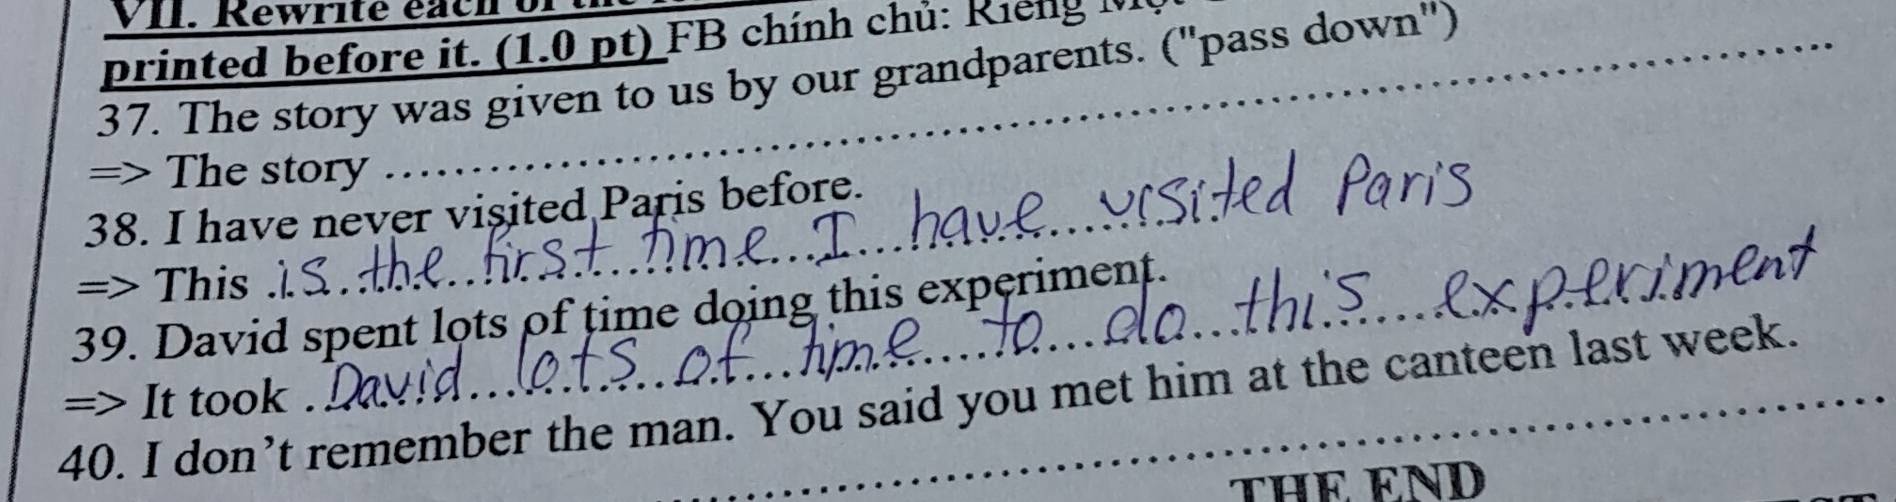 VII. Rewrite each of the
printed before it. (1.0 pt) FB chính chủ: Rieng
37. The story was given to us by our grandparents. ("pass down")
=> The story ..........
38. I have never visited Paris before.
=> This is the first time I have visited Paris
39. David spent lots of time doing this experiment.
=> It took David lots of time to do this experiment
40. I don't remember the man. You said you met him at the canteen last week.
THE END